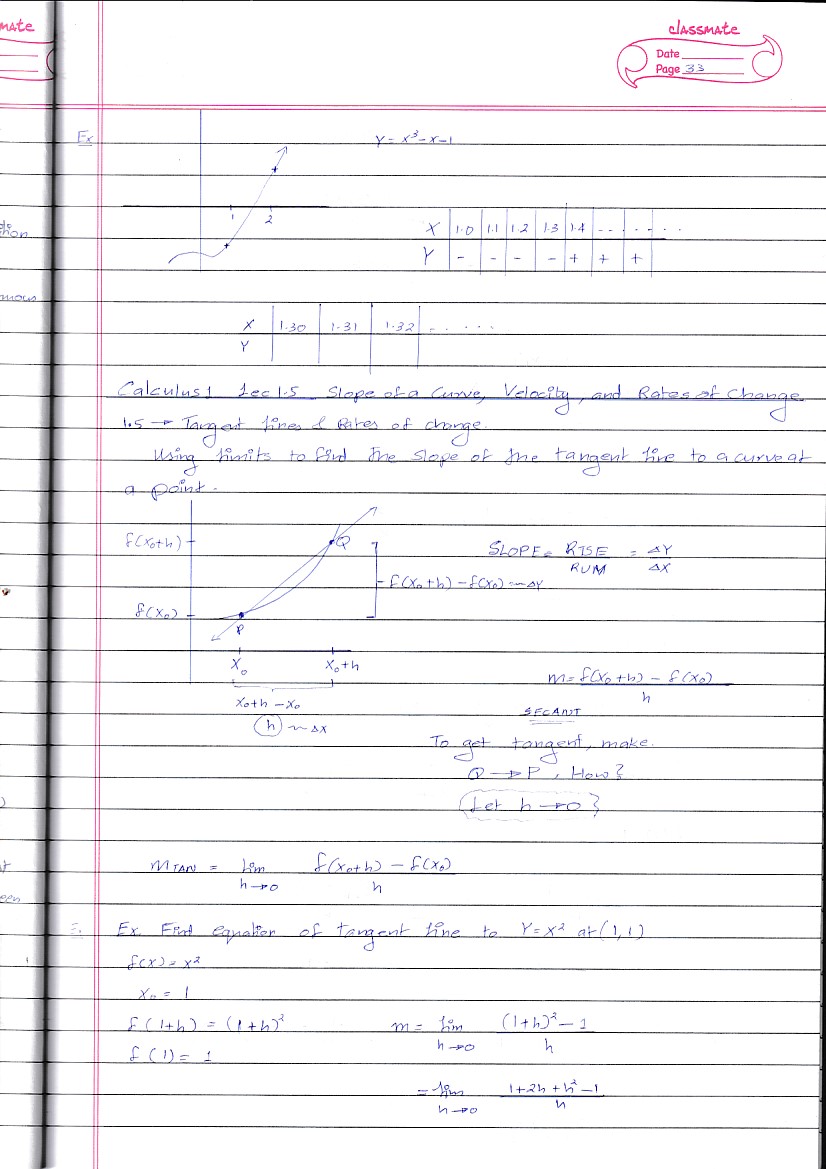 mate
classmate
Date
Page 33
Ex
Y = X³ - X - 1
1 2
X 1.0 1.1 1.2 1.3 1.4 .......
Y - - - - + + +
mous
X 1.30 1.31 1.32 ......
Y
Calculus 1 Lec 1.5 Slope of a Curve, Velocity, and Rates of Change
1.5 → Tangent lines & Rates of change.
Using limits to find the slope of the tangent line to a curve at
a point.
f(x₀+h) Q SLOPE = RISE = ΔY
RUM ΔX
f(x₀+h) - f(x₀) ~ ΔY
f(x₀) P
X₀ X₀+h
m = f(x₀+h) - f(x₀)
h
X₀+h - X₀
SECANT
h ~ ΔX
To get tangent, make.
Q → P, How?
(Let h → 0}
een
M TAN = lim f(x₀+h) - f(x₀)
h→0 h
Ex. Find equation of tangent line to Y = X² at (1,1)
f(x) = x²
X₀ = 1
f(1+h) = (1+h)² m = lim (1+h)² - 1
h→0 h
f(1) = 1
= lim 1+2h+h²-1
h→0 h